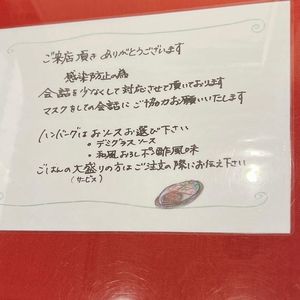 ご来店頂きありがとうございます
感染防止の為
会話を少なくして対応させて頂いております
マスクをしての会話にご協力お願いいたします
ハンバーグはおソースお選び下さい
• デミグラスソース
• 和風おろしポン酢風味
ごはんの大盛りの方はご注文の際にお伝え下さい
(サービス)